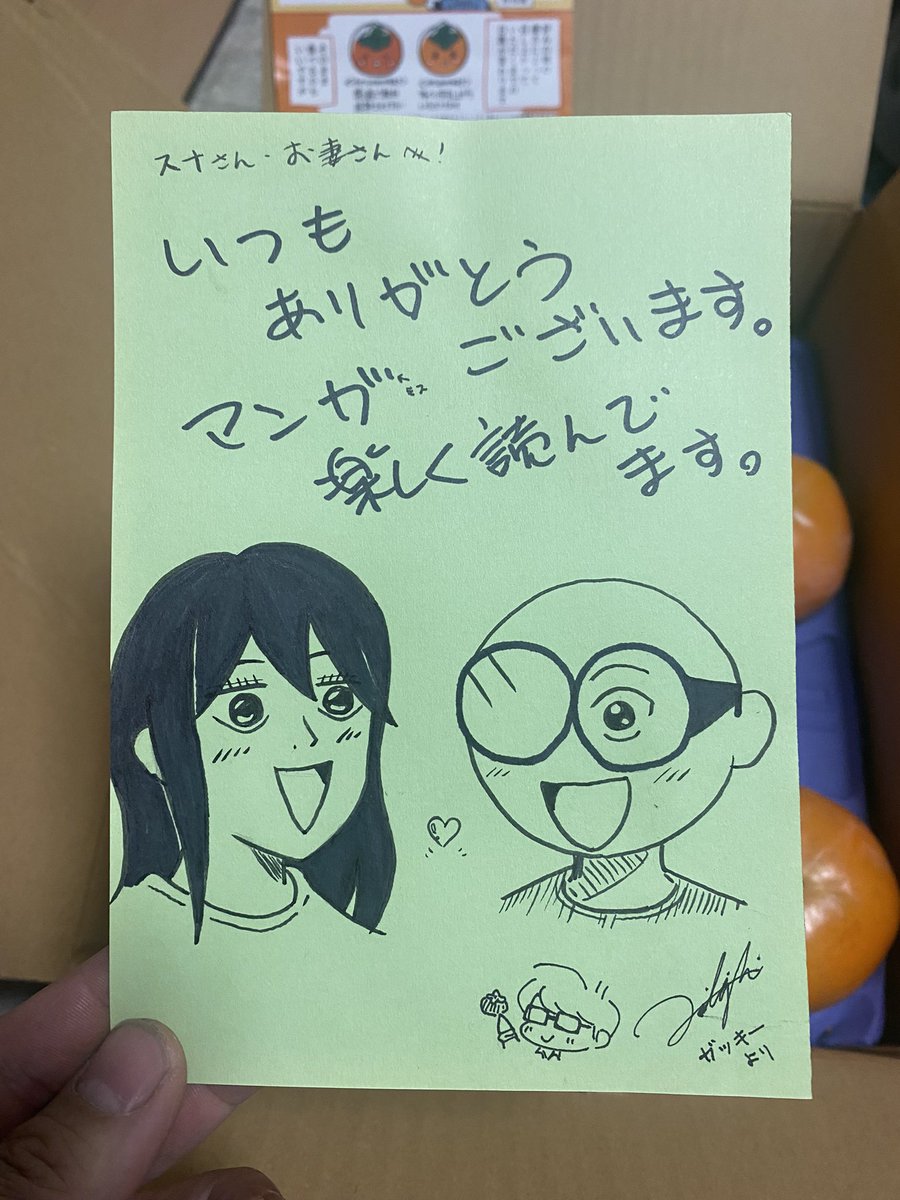 スナさん・お妻さんへ!
いつも
ありがとう
ございます。
マンガ
楽しく読んで
ます。
ガッキー
より